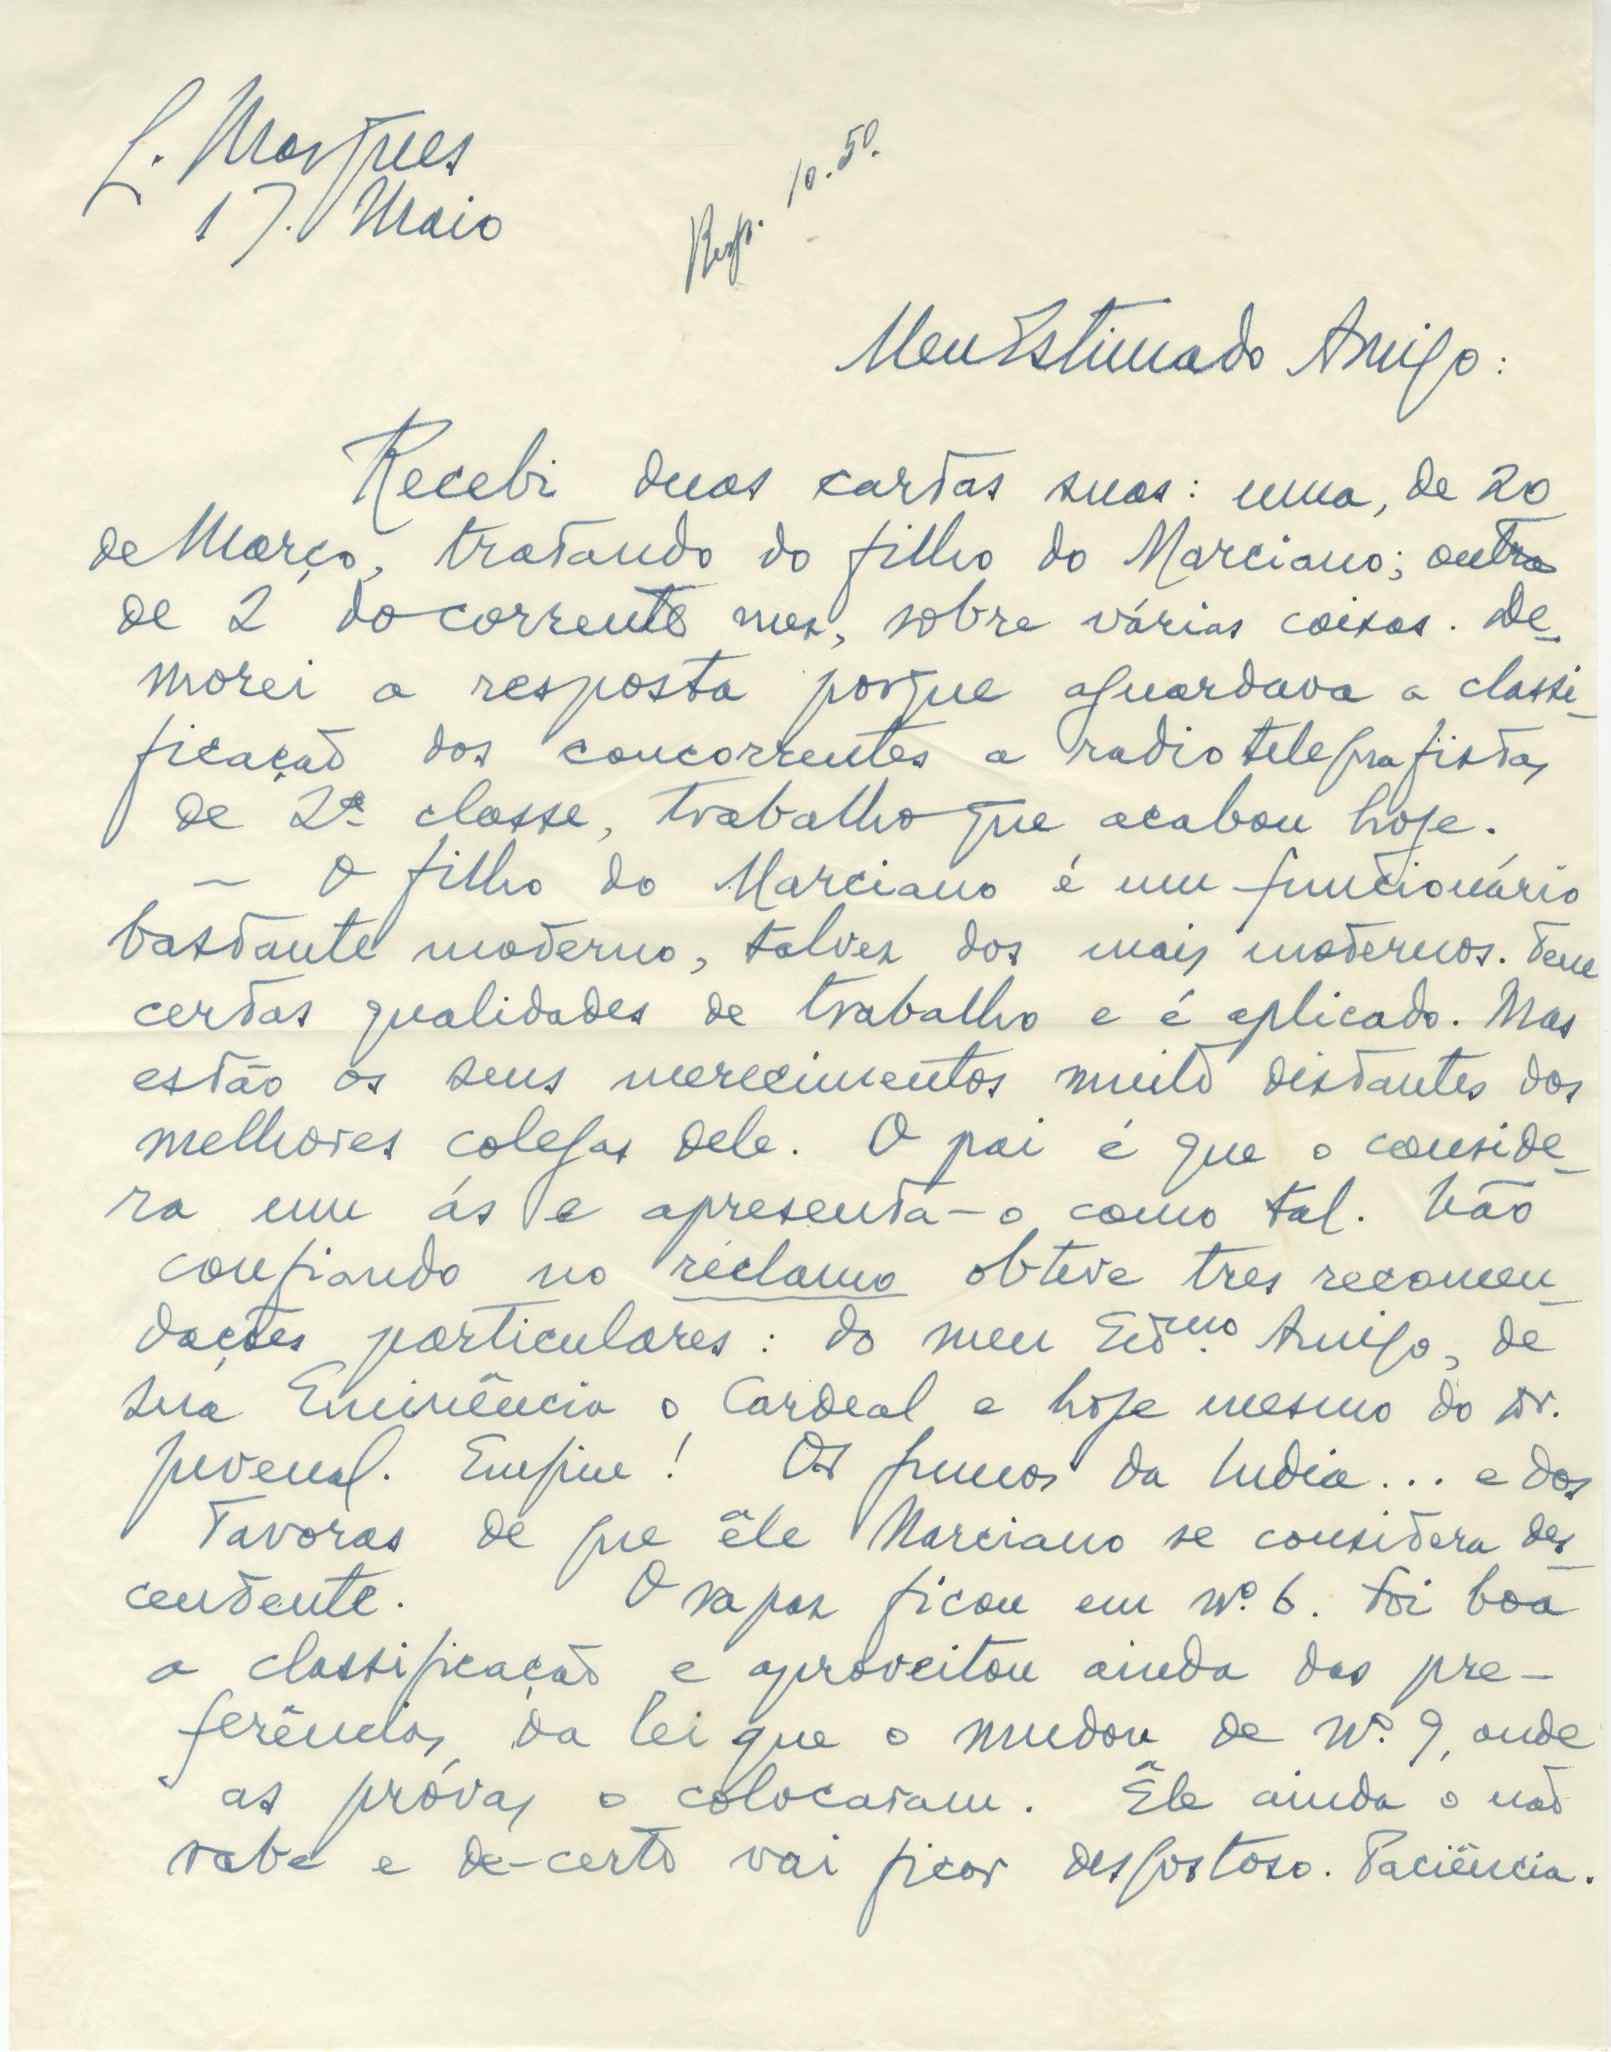 L. Marques
17. Maio
Resp. 10.50.
Meu Estimado Amigo:
Recebi duas cartas suas: uma, de 20
de Março, tratando do filho do Marciano; outra
de 2 do corrente mez, sobre várias coisas. De-
morei a resposta porque aguardava a classi-
ficação dos concorrentes a radiotelegrafistas
de 2ª classe, trabalho que acabou hoje.
— O filho do Marciano é um funcionário
bastante moderno, talvez dos mais modernos. Tem
certas qualidades de trabalho e é aplicado. Mas
estão os seus merecimentos muito distantes dos
melhores colegas dele. O pai é que o conside-
ra um ás e apresenta-o como tal. Não
confiando no réclamo obteve tres recomen-
dações particulares: do meu Estmo. Amigo, de
Sua Eminência o Cardeal e hoje mesmo do Dr.
Juvenal. Emfim! Os fumos da India... e dos
Tavoras de que êle Marciano se considera des-
cendente. O rapaz ficou em nº. 6. Foi boa
a classificação e aproveitou ainda das pre-
ferências da lei que o mudou de nº. 9, onde
as próvas o colocaram. Êle ainda o não
sabe e de-certo vai ficar desgostoso. Paciência.